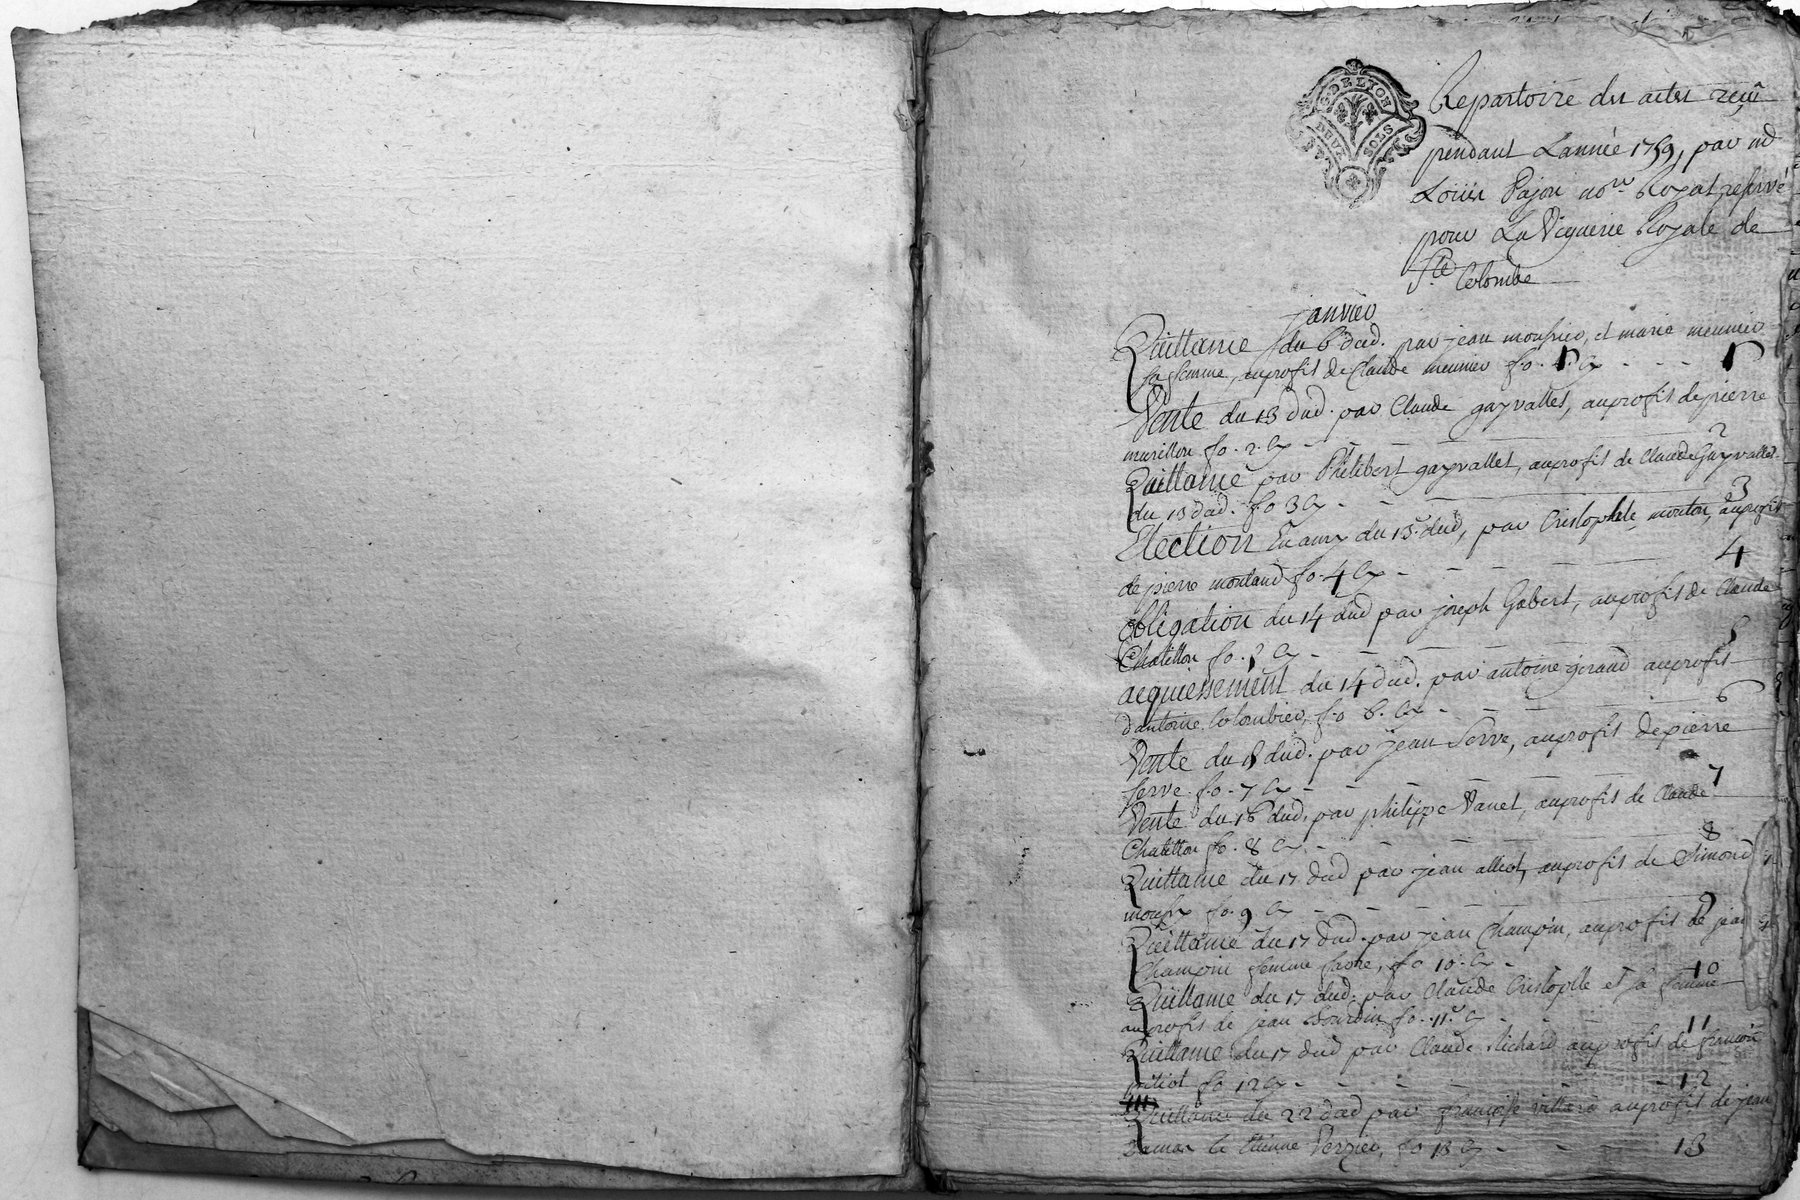 G. DE LYON
DEUX SOLS
Repartoire des actes reçû
pendant L'année 1759, par nd
Louis Pajon nore Royal reservé
pour La Viguerie Royale de
Ste Colombe
janvier
Quittame du 6 dud. par jean mousnier, et marie meunier
sa femme, auprofit de Claude meunier fo. 1
Vente du 13 dud. par Claude gayvallet, auprofit de pierre
murillon fo. 2. 2
Quittame par Philibert gayvallet, auprofit de Claude Gayvallet
du 13 dud. fo 3 3
Election En amy du 13. dud, par Cristophle monton, auprofit
de pierre montaud fo. 4 4
obligation du 14 dud par joseph Gabert, auprofit de Claude
Chatillon fo. 5 5
acquiessement du 14 dud. par antoine giraud auprofit
d'antoine Colombier, fo 6. 6
Vente du 8 dud. par jean Serve, auprofit de pierre
serve fo. 7 7
Vente du 16 dud. par philippe Vanel, auprofit de Claude
Chatillon fo. 8 8
Quittame du 17 dud par jean alliot, auprofit de Simond
fo. 9 9
Quittame du 17 dud. par jean Champin, auprofit de jean
Champin femme favre, fo 10. 10
Quittame du 17 dud. par Claude Cristophle et sa femme
auprofit de jean Bourdin fo. 11. 11
Quittame du 17 dud par Claude Richard auprofit de francois
pitiot fo 12 12
Quittame du 22 dud par françoise villard auprofit de jean
Damas le Etienne Verzier, fo 13 13